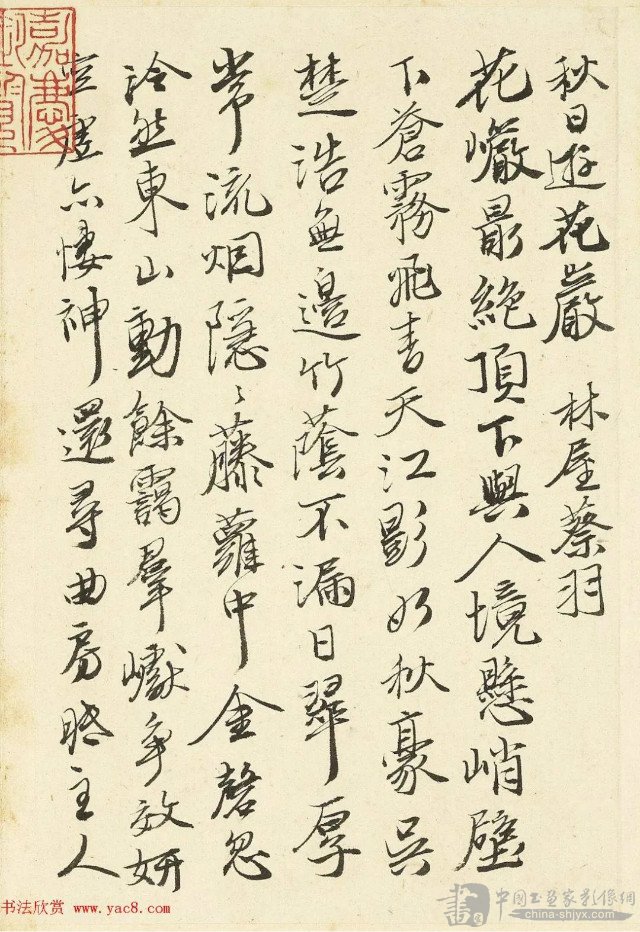 秋日遊花巖 林屋蔡羽
花巖最絶頂下與人境懸峭壁
下蒼霧飛書天江影如秋豪呉
楚浩無邉竹蔭不漏日翠厚
常流烟隱〻藤蘿中金磬忽
泠然東山動餘靄羣巘爭效妍
亦悽神還尋曲房眠主人
书法欣赏 www.yac8.com
書 中国书画家影像網
china-shjyx.com